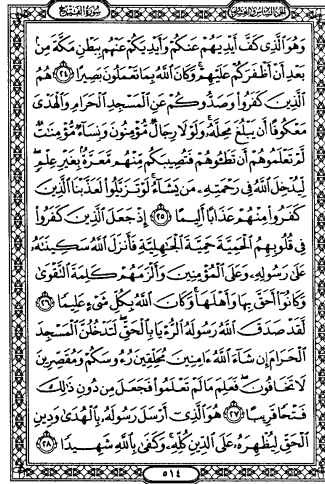 الجزء السادس والعشرون سورة الفتح
وَهُوَ ٱلَّذِى كَفَّ أَيْدِيَهُمْ عَنكُمْ وَأَيْدِيَكُمْ عَنْهُم بِبَطْنِ مَكَّةَ مِنۢ
بَعْدِ أَنْ أَظْفَرَكُمْ عَلَيْهِمْ ۚ وَكَانَ ٱللَّهُ بِمَا تَعْمَلُونَ بَصِيرًا ٢٤ هُمُ
ٱلَّذِينَ كَفَرُوا۟ وَصَدُّوكُمْ عَنِ ٱلْمَسْجِدِ ٱلْحَرَامِ وَٱلْهَدْىَ
مَعْكُوفًا أَن يَبْلُغَ مَحِلَّهُۥ ۚ وَلَوْلَا رِجَالٌ مُّؤْمِنُونَ وَنِسَآءٌ مُّؤْمِنَٰتٌ
لَّمْ تَعْلَمُوهُمْ أَن تَطَـُٔوهُمْ فَتُصِيبَكُم مِّنْهُم مَّعَرَّةٌۢ بِغَيْرِ عِلْمٍ ۖ
لِّيُدْخِلَ ٱللَّهُ فِى رَحْمَتِهِۦ مَن يَشَآءُ ۚ لَوْ تَزَيَّلُوا۟ لَعَذَّبْنَا ٱلَّذِينَ
كَفَرُوا۟ مِنْهُمْ عَذَابًا أَلِيمًا ٢٥ إِذْ جَعَلَ ٱلَّذِينَ كَفَرُوا۟
فِى قُلُوبِهِمُ ٱلْحَمِيَّةَ حَمِيَّةَ ٱلْجَٰهِلِيَّةِ فَأَنزَلَ ٱللَّهُ سَكِينَتَهُۥ
عَلَىٰ رَسُولِهِۦ وَعَلَى ٱلْمُؤْمِنِينَ وَأَلْزَمَهُمْ كَلِمَةَ ٱلتَّقْوَىٰ
وَكَانُوٓا۟ أَحَقَّ بِهَا وَأَهْلَهَا ۚ وَكَانَ ٱللَّهُ بِكُلِّ شَىْءٍ عَلِيمًا ٢٦
لَّقَدْ صَدَقَ ٱللَّهُ رَسُولَهُ ٱلرُّءْيَا بِٱلْحَقِّ ۖ لَتَدْخُلُنَّ ٱلْمَسْجِدَ
ٱلْحَرَامَ إِن شَآءَ ٱللَّهُ ءَامِنِينَ مُحَلِّقِينَ رُءُوسَكُمْ وَمُقَصِّرِينَ
لَا تَخَافُونَ ۖ فَعَلِمَ مَا لَمْ تَعْلَمُوا۟ فَجَعَلَ مِن دُونِ ذَٰلِكَ
فَتْحًا قَرِيبًا ٢٧ هُوَ ٱلَّذِىٓ أَرْسَلَ رَسُولَهُۥ بِٱلْهُدَىٰ وَدِينِ
ٱلْحَقِّ لِيُظْهِرَهُۥ عَلَى ٱلدِّينِ كُلِّهِۦ ۚ وَكَفَىٰ بِٱللَّهِ شَهِيدًا ٢٨
٥١٤